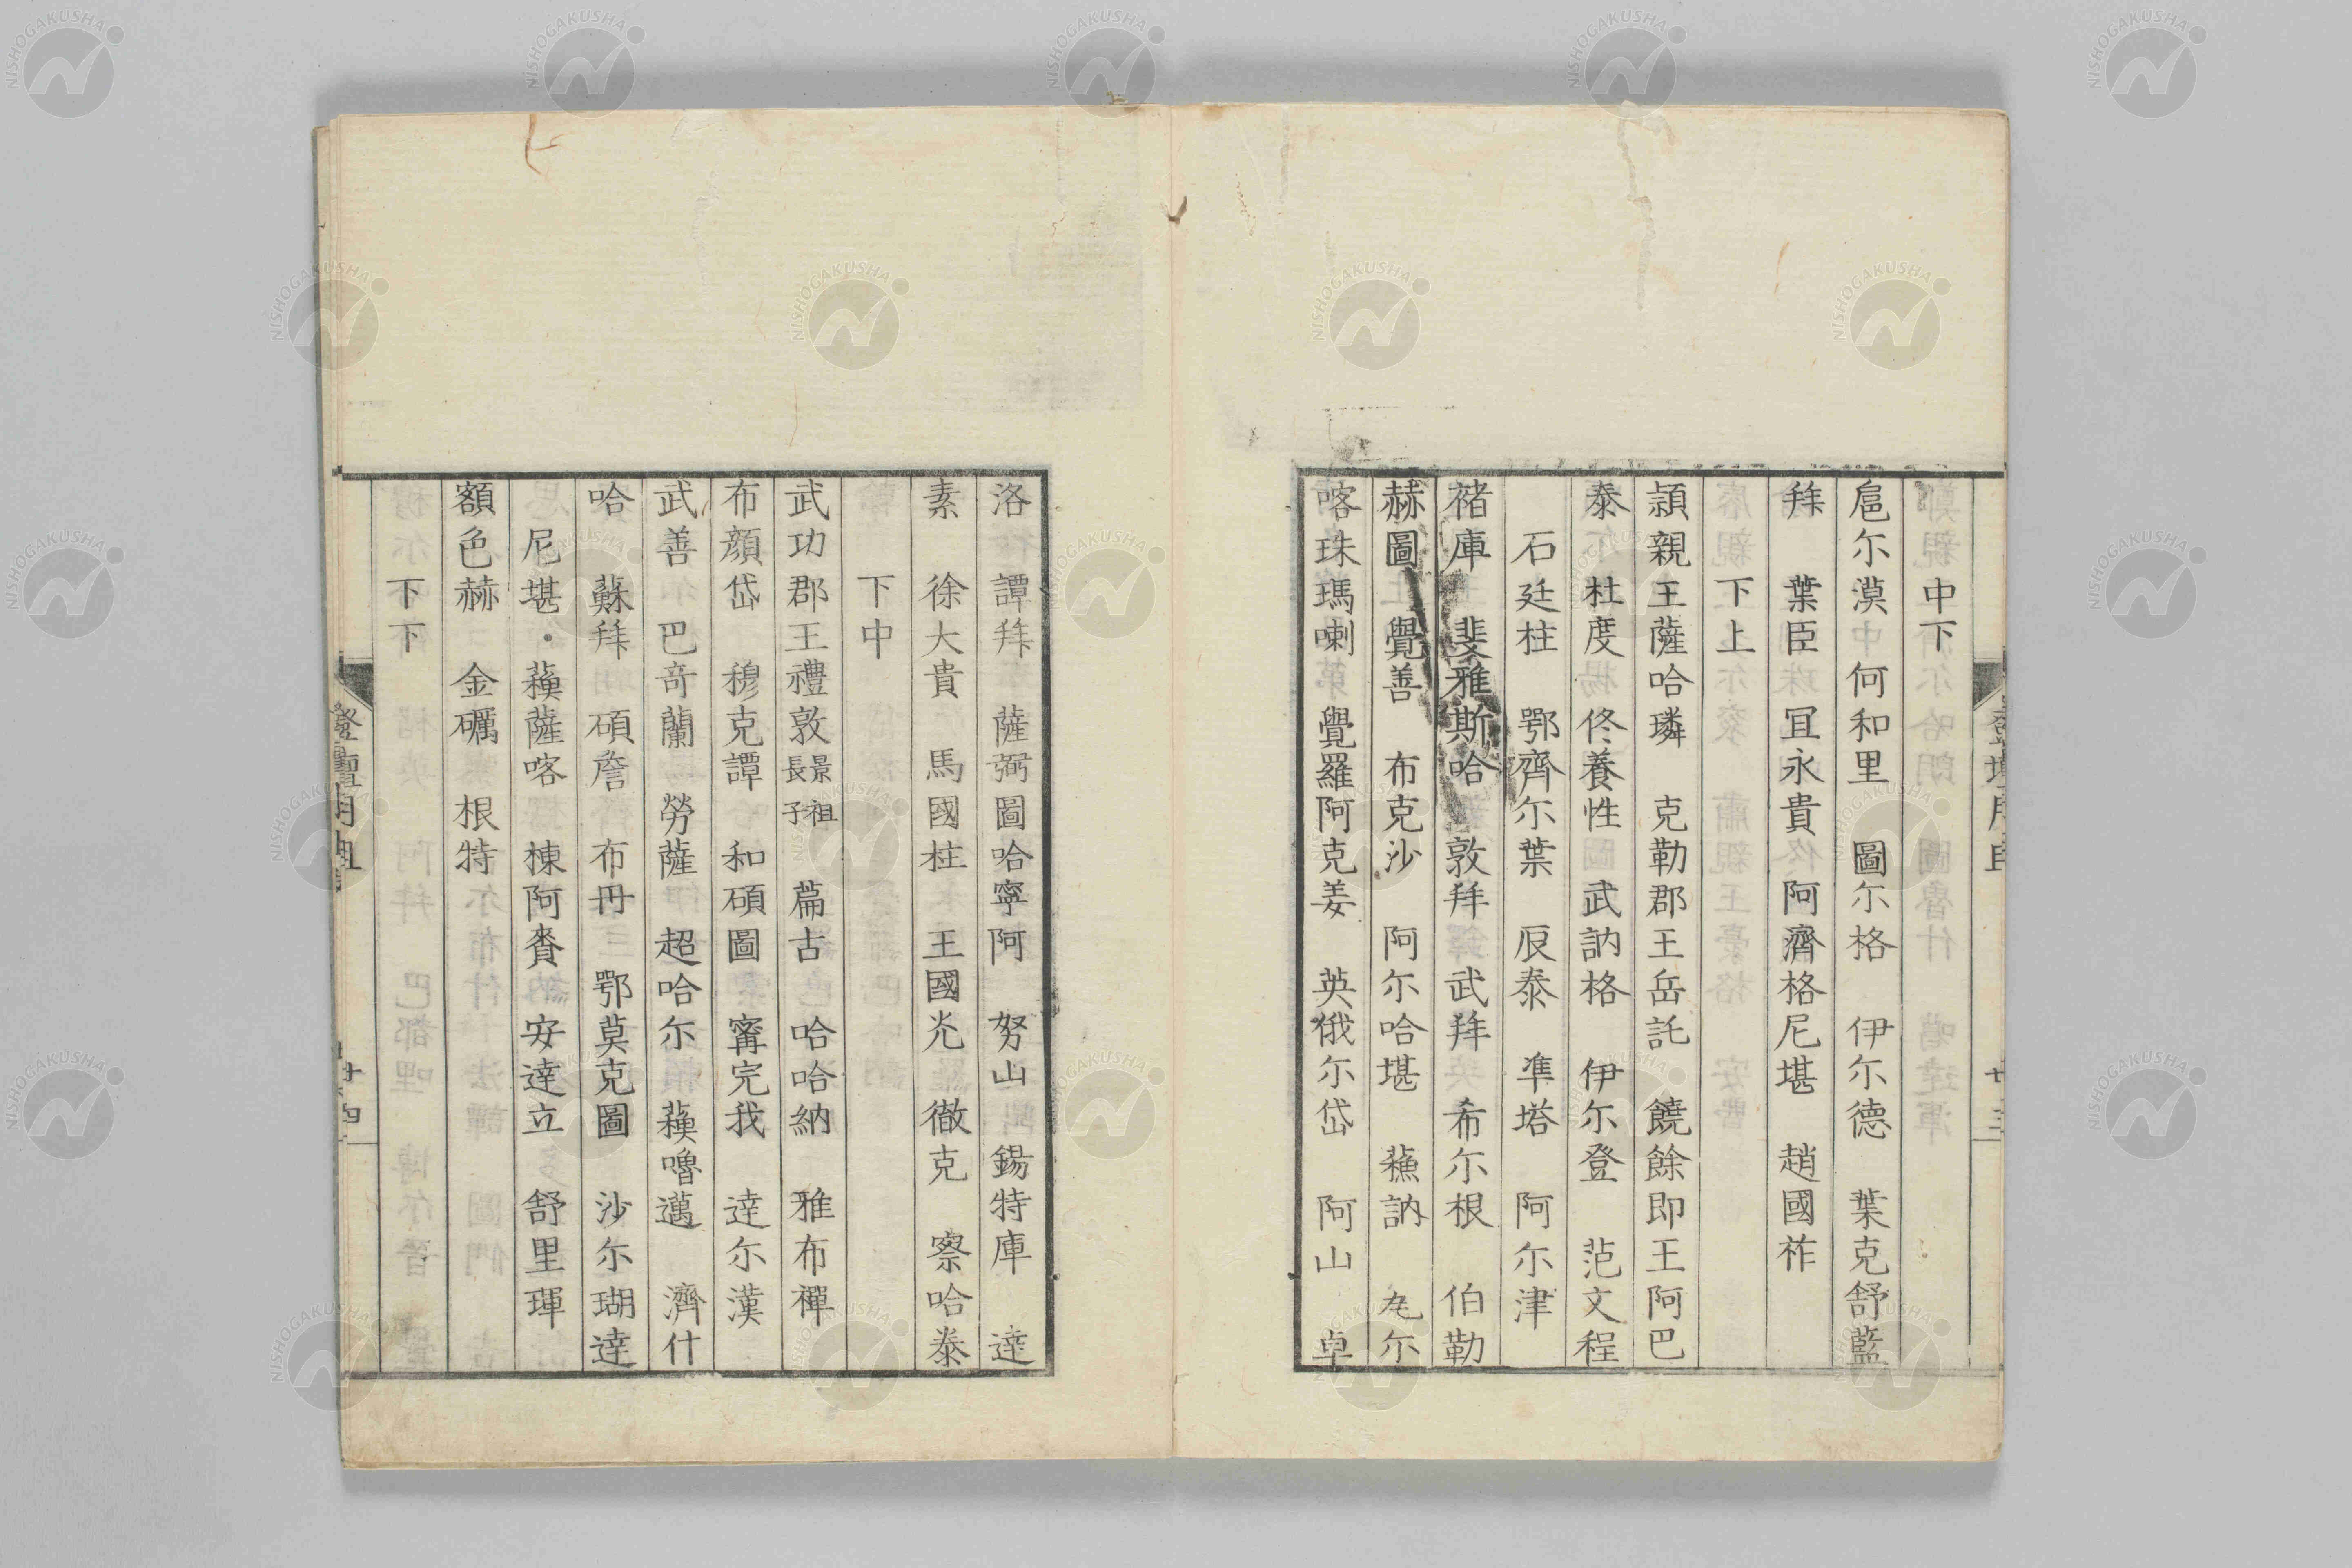 中下
扈尔漠 何和里 圖尔格 伊尔德 葉克舒 藍
拜 葉臣 冝永貴 阿濟格尼堪 趙國祚
下上
頴親王薩哈璘 克勒郡王岳託 饒餘即王阿巴
泰 杜度 佟養性 武訥格 伊尔登 范文程
石廷柱 鄂齊尔葉 辰泰 凖塔 阿尔津
褚庫 斐雅斯哈 敦拜 武拜 希尔根 伯勒
赫圖 覺善 布克沙 阿尔哈堪 蘓訥 尨尔
喀珠瑪喇 覺羅阿克姜 英俄尔岱 阿山 卓
洛 譚拜 薩弼圖 哈寧阿 努山 錫特庫 達
素 徐大貴 馬國柱 王國光 徹克 察哈泰
下中
武功郡王禮敦景祖長子 萹古 哈哈納 雅布襌
布顔岱 穆克譚 和碩圖 甯完我 達尔漢
武善 巴奇蘭 勞薩 超哈尔 蘓嚕邁 濟什
哈 蘇拜 碩詹 布冊 鄂莫克圖 沙尔瑚達
尼堪 蘓薩喀 棟阿賚 安達立 舒里琿
額色赫 金礪 根特
下下
NISHOGAKUSHA